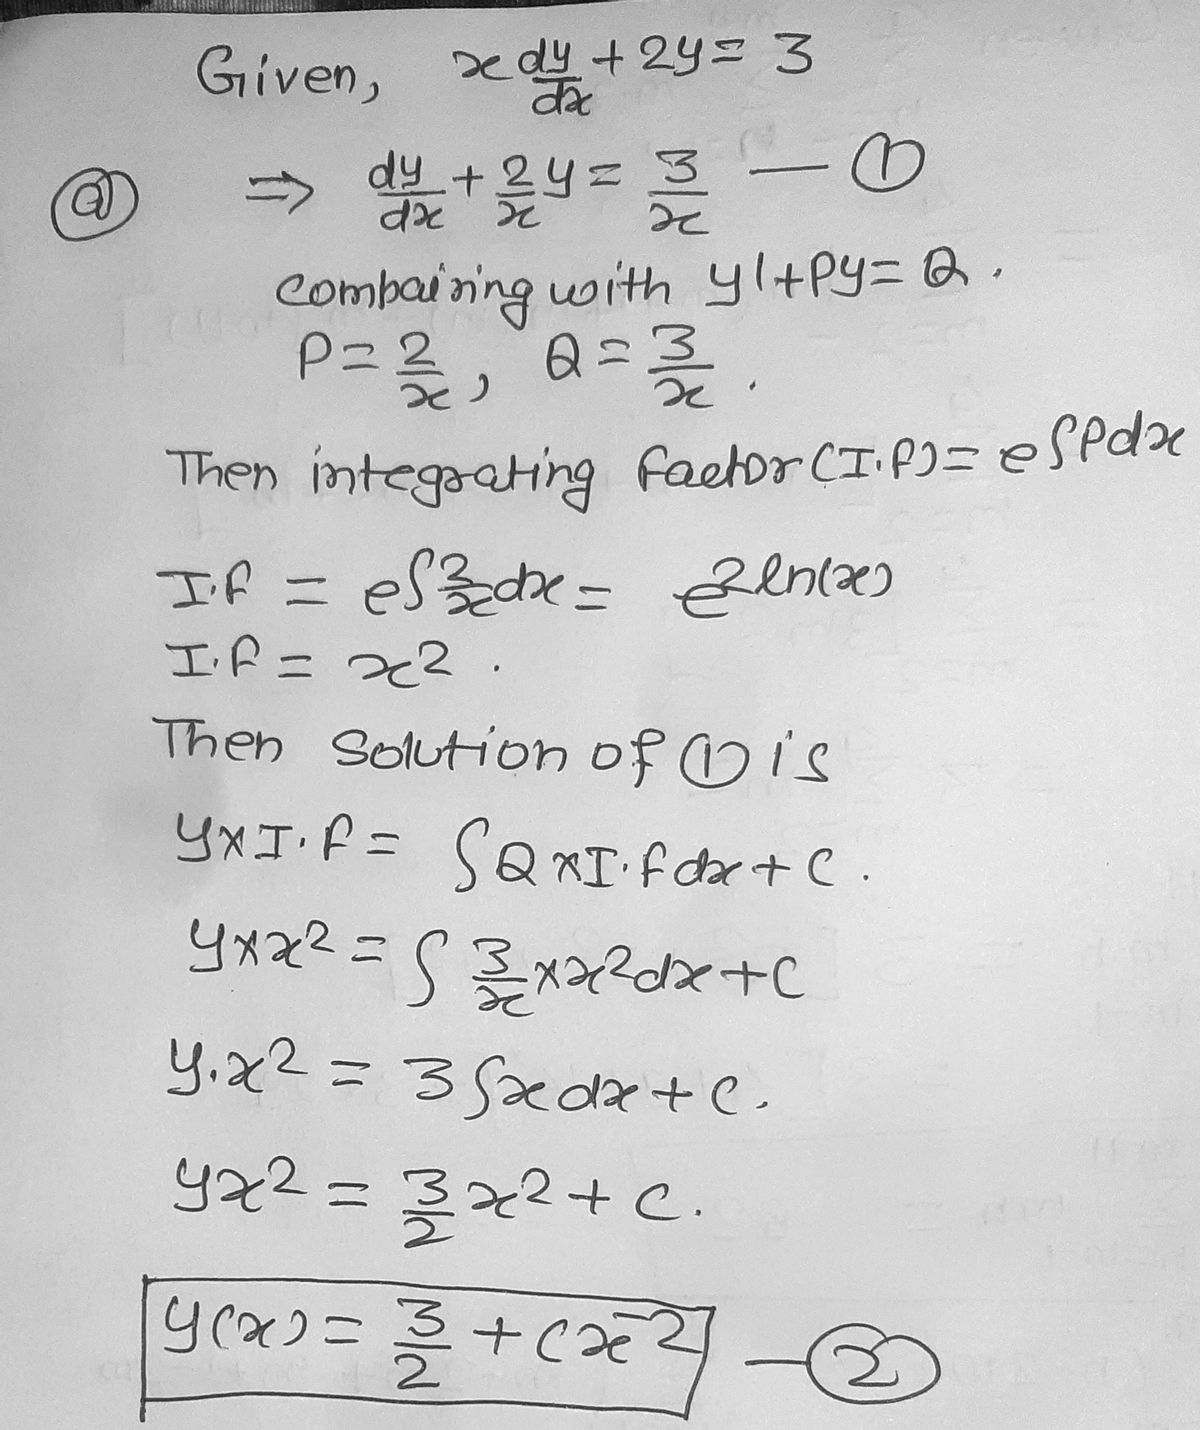 Given, x dy/dx + 2y = 3
(a) ⇒ dy/dx + 2/x y = 3/x — ①
combaining with y' + Py = Q.
P = 2/x, Q = 3/x.
Then integrating factor (I.f) = e∫Pdx
I.f = e∫2/x dx = e^2ln(x)
I.f = x².
Then solution of ① is
y×I.f = ∫Q×I.f dx + C.
y×x² = ∫ 3/x × x² dx + C
y.x² = 3∫x dx + C.
yx² = 3/2 x² + C.
y(x) = 3/2 + Cx⁻² — ②